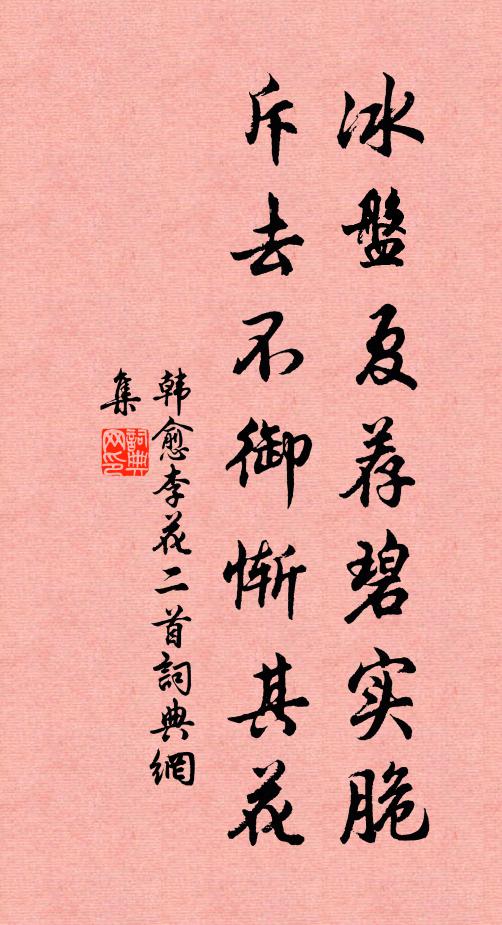 冰盤夏荐碧实脆
斥去不御惭其花
韩愈李花二首詞典網
集
詞典網印